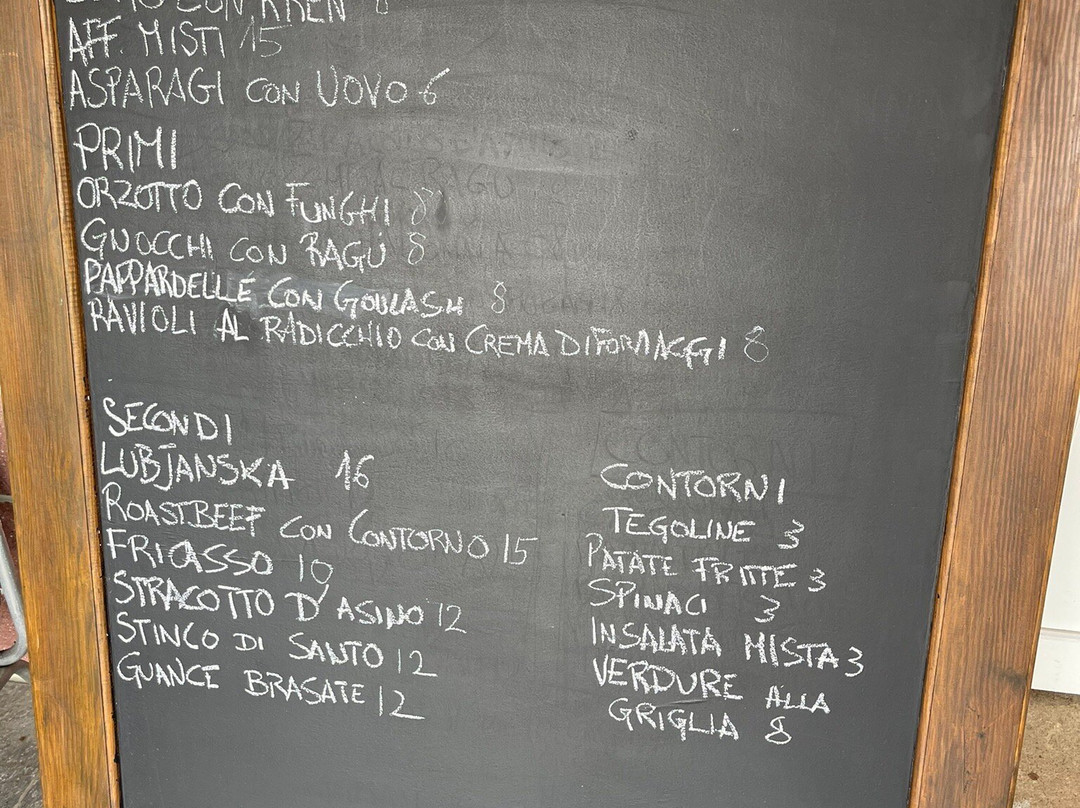 CON KREN 8
AFF. MISTI 15
ASPARAGI CON UOVO 6
PRIMI
ORZOTTO CON FUNGHI 8
GNOCCHI CON RAGÙ 8
PAPPARDELLE CON GOULASH 8
RAVIOLI AL RADICCHIO CON CREMA DI FORMAGGI 8
SECONDI
LUBJANSKA 16
ROASTBEEF CON CONTORNO 15
FRICASSO 10
STRACOTTO D'ASINO 12
STINCO DI SANTO 12
GUANCE BRASATE 12
CONTORNI
TEGOLINE 3
PATATE FRITTE 3
SPINACI 3
INSALATA MISTA 3
VERDURE ALLA
GRIGLIA 8